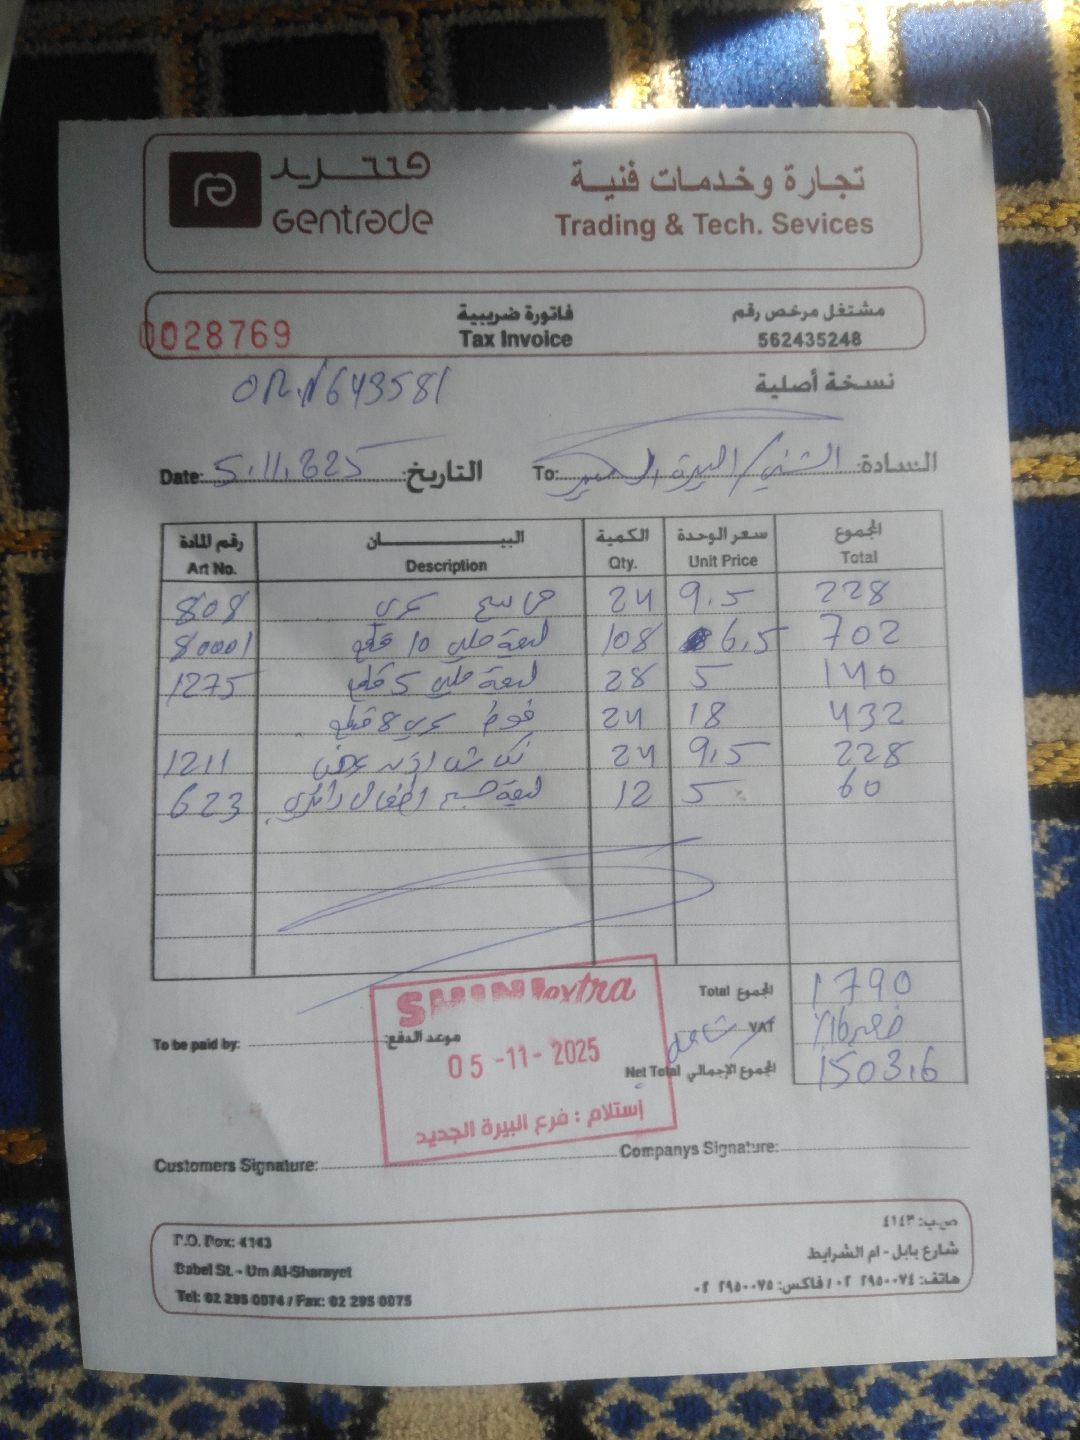 جنتريد
Gentrade
تجارة وخدمات فنية
Trading & Tech. Sevices
0028769
فاتورة ضريبية
Tax Invoice
مشتغل مرخص رقم
562435248
نسخة أصلية
643581
السادة: الشني / البيرة To:
التاريخ: 5.11.2025 Date:
رقم المادة البيان الكمية سعر الوحدة المجموع
Art No. Description Qty. Unit Price Total
808 24 9.5 228
80001 ليفة جلي 10 قطع 108 6.5 702
1275 ليفة جلي 5 قطع 28 5 140
8 قطع 24 18 432
1211 24 9.5 228
623 ليفة اطفال دائري 12 5 60
Total المجموع 1790
VAT خصم 16%
Net Total المجموع الإجمالي 1503.6
To be paid by: موعد الدفع:
SHINI extra
05-11-2025
إستلام : فرع البيرة الجديد
Customers Signature:
Companys Signature:
P.O. Box: 4143
Babel St. - Um Al-Sharayet
Tel: 02 295 0074 / Fax: 02 295 0075
ص.ب: ٤١٤٣
شارع بابل - ام الشرايط
هاتف: ٢٩٥٠٠٧٤ ٠٢ / فاكس: ٢٩٥٠٠٧٥ ٠٢